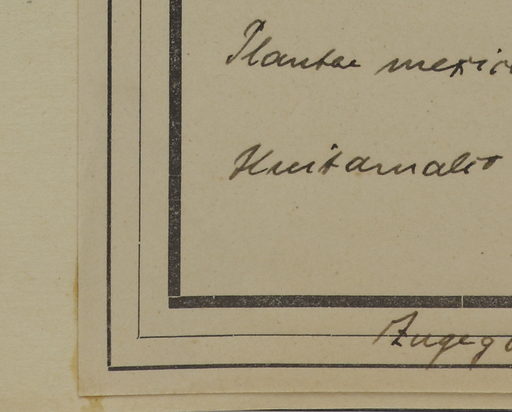 Plantae mexic
Huitamalco
Zugeg